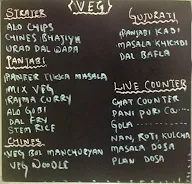 (VEG)
STRATER
ALO CHIPS
CHINES BHATIYA
URAD DAL WADA
PANJABI
PANEER TIKKA MASALA
MIX VEG
RAJMA CURRY
ALO GOBI
DAL FRY
STEM RICE
CHINES
VEG BOL MANCHURYAN
VEG NOODLE
GUJURATI
PANJABI KADI
MASALA KHICHDI
DAL BAFLA
LIVE COUNTER
CHAT COUNTER
PANI PURI
GOLA
NAN, ROTI KULCHA
MASALA DOSA
PLAN DOSA